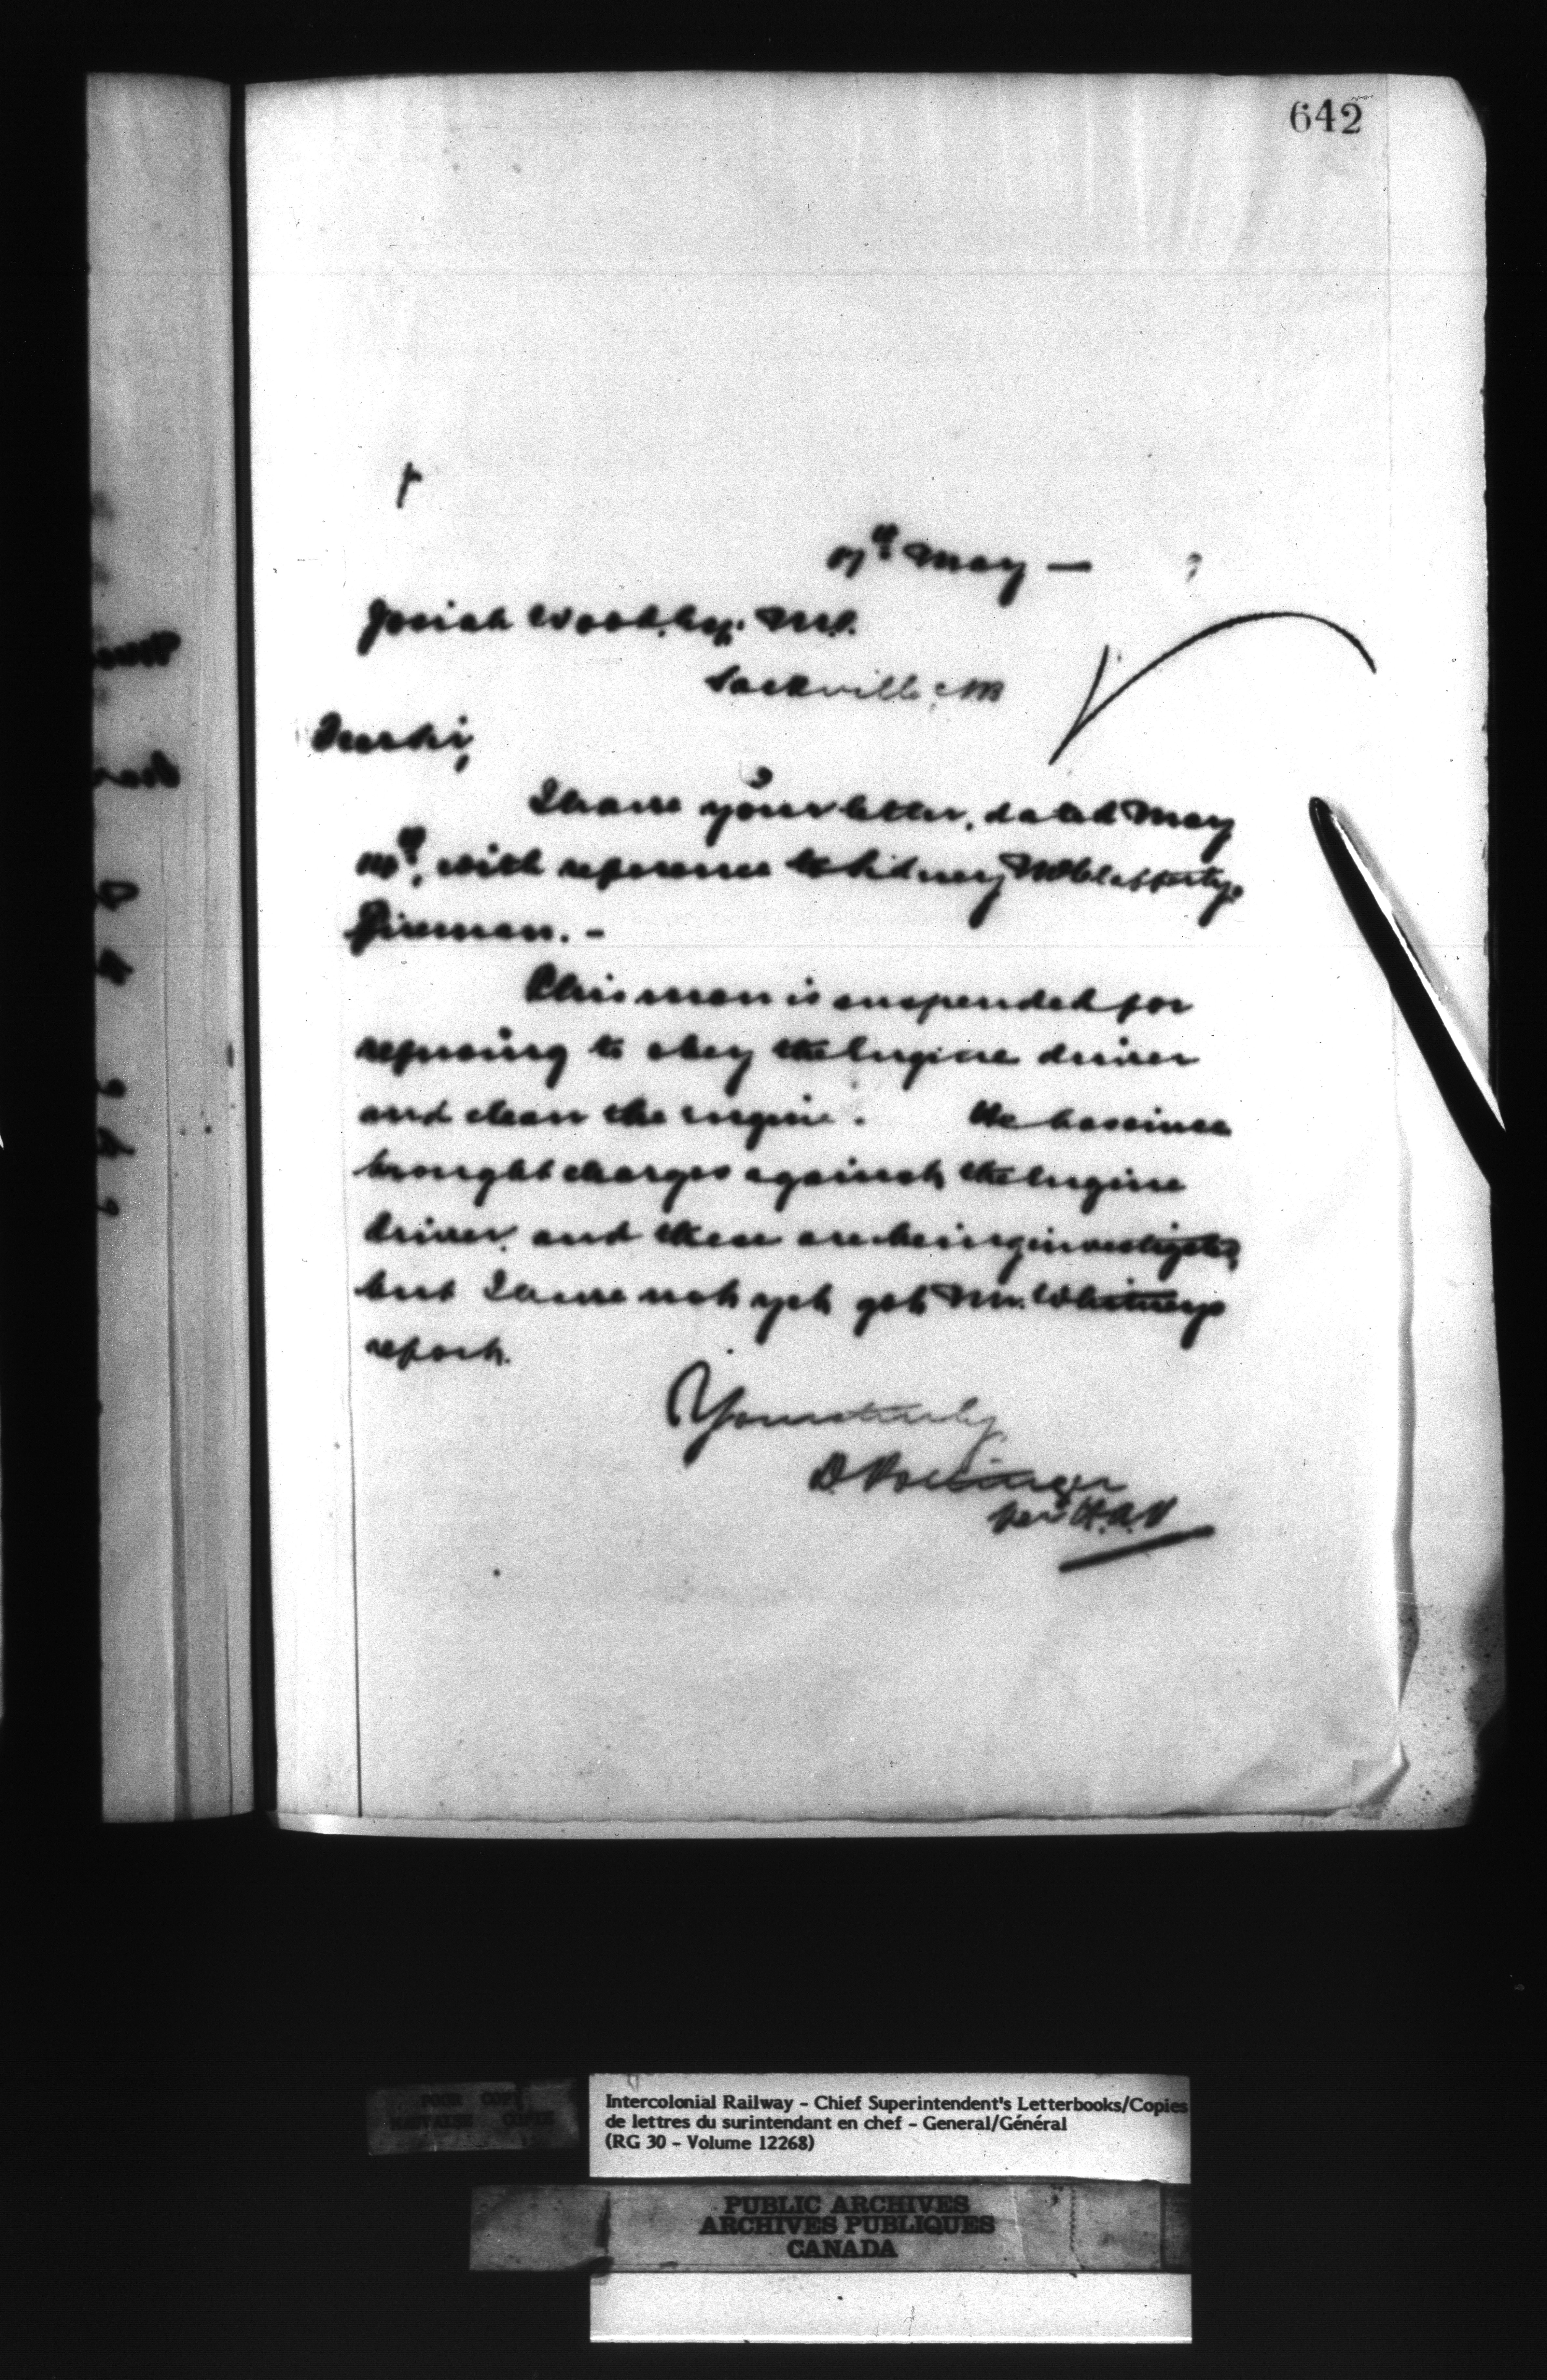 642
7th May —
Josiah Wood, Esq. M.P.
Sackville, NB
Dear Sir,
I have your letter, dated May
with reference to Sidney McClafferty,
Fireman. —
This man is suspended for
refusing to obey the Engine driver
and clean the engine. He has since
brought charges against the Engine
driver, and these are being investigated,
but I have not yet got Mr. Whitney's
report.
Yours truly
D Pottinger
per H.A.P
POUR COPIE
MAUVAISE COPIE
Intercolonial Railway - Chief Superintendent's Letterbooks/Copies
de lettres du surintendant en chef - General/Général
(RG 30 - Volume 12268)
PUBLIC ARCHIVES
ARCHIVES PUBLIQUES
CANADA